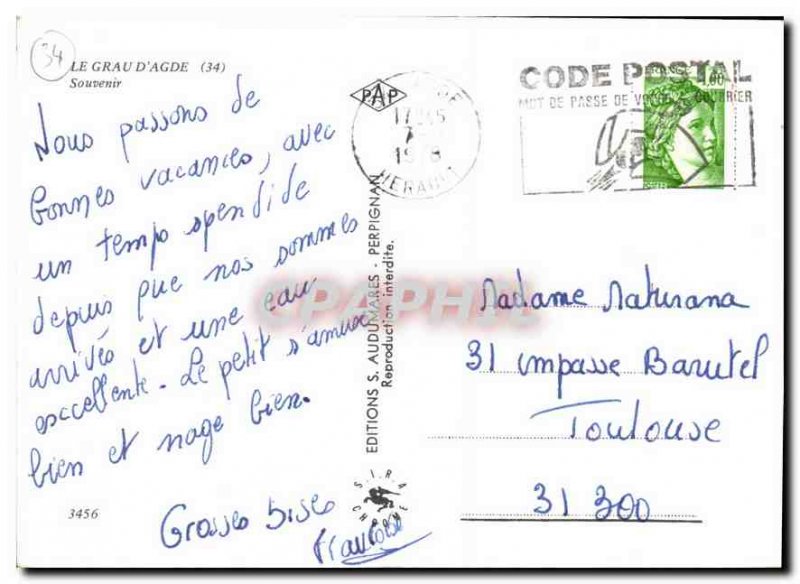 34
LE GRAU D'AGDE (34)
Souvenir
Nous passons de
bonnes vacances, avec
un temps spendide
depuis que nos sommes
arrivés et une eau
exccellente. Le petit s'amuse
bien et nage bien.
Grosses bises
Françoise
3456
PAP
EDITIONS S. AUDUMARES - PERPIGNAN
Reproduction interdite.
S.I.R.A.
CHROME
17H45
HERAULT
CODE POSTAL
MOT DE PASSE DE VOTRE COURRIER
1,00
CPAPHIL
Madame Maturana
31 impasse Barutel
Toulouse
31 300